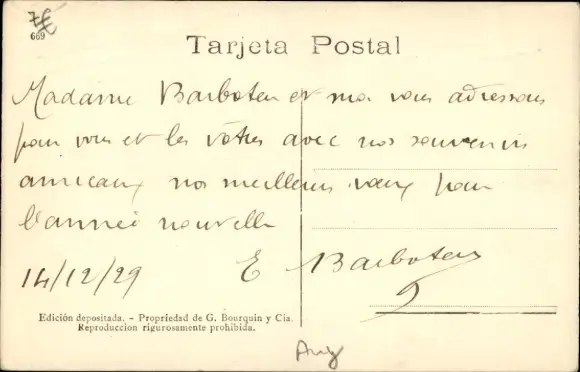 7€
669
Tarjeta Postal
Madame Barboteu et moi vous adressons
pour vous et les vôtres avec nos souvenirs
amicaux nos meilleurs vœux pour
l'année nouvelle
14/12/29 E Barboteu
Edición depositada. - Propriedad de G. Bourquin y Cía.
Reproduccion rigurosamente prohibida.
Arg